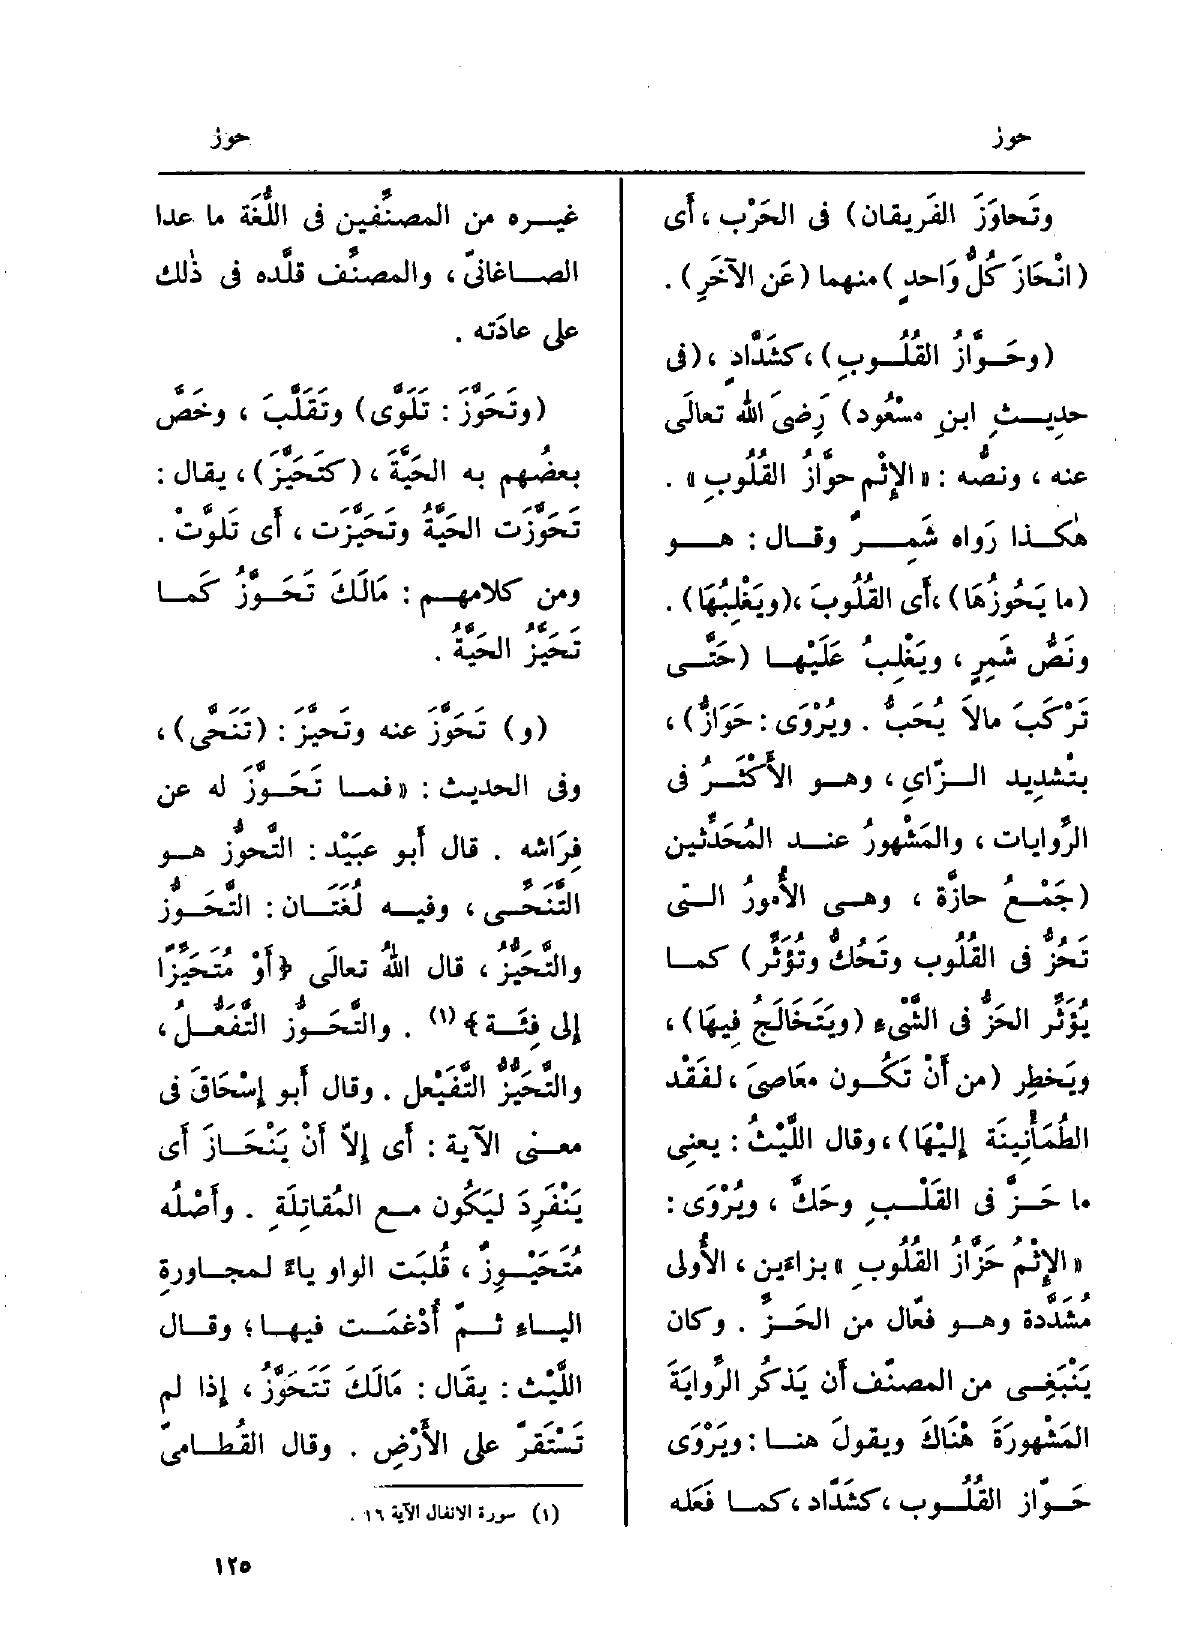 حوز
حوز
وتَحاوَزَ الفَرِيقان) فى الحَرْب ، أَى
(انْحَازَ كُلُّ وَاحدٍ) منهما (عَن الآخَرِ) .
(وحَــوَّازُ القُلُــوبِ) ، كشَدَّادٍ ، (فى
حدِيــثِ ابنِ مسْعُود) رَضِىَ اللهُ تعالَى
عنه ، ونصُّه : « الإِثْم حوَّازُ القُلُوبِ » .
هٰكــذا رَواه شَمِــرٌ وقــال : هــو
(ما يَحُوزُهَا) ، أَى القُلُوبَ ، (ويَغْلِبُهَا) .
ونَصُّ شَمِرٍ ، ويَغْلِبُ عَلَيْهــا (حَتَّــى
تَرْكَبَ مالاَ يُحَبُّ . ويُرْوَى : حَوَازُّ) ،
بتْشدِيد الــزَّاىِ ، وهــو الأَكْثَــرُ فى
الرِّوايات ، والمَشْهورُ عنــد المُحَدِّثين
(جَمْــعُ حازَّة ، وهــى الأُمورُ الــتى
تَحُزُّ فى القُلُوب وتَحُكُّ وتُؤَثِّر) كمــا
يُؤَثِّر الحَزُّ فى الشَّىْء (ويَتَخَالَجُ فِيهَا) ،
ويَخطِر (من أَنْ تَكُــون معَاصِىَ ، لفَقْد
الطُّمَأْنِينَة إِليْهَا) ، وقال اللَّيْثُ : يعنِى
ما حَــزَّ فى القَلْــبِ وحَكَّ ، ويُرْوَى :
« الإِثْمُ حَزَّازُ القُلُوبِ » بزاءَين ، الأُولى
مُشَدَّدة وهــو فَعَّال من الحَــزِّ . وكان
يَنْبَغِــى من المصنِّف أَن يَذكُر الرِّوايَةَ
المَشْهورَةَ هُنَاكَ ويقولَ هنــا : ويَرْوَى
حَــوَّاز القُلُــوب ، كشَدَّاد ، كمــا فَعَله
غيــره من المصنِّفين فى اللُّغَة ما عدا
الصــاغانىّ ، والمصنِّف قلَّده فى ذٰلك
على عادَته .
(وتَحَوَّزَ : تَلَوَّى) وتَقَلَّبَ ، وخَصَّ
بعضُهم به الحَيَّةَ ، (كتَحَيَّزَ) ، يقال :
تَحَوَّزَت الحَيَّةُ وتَحَيَّزت ، أَى تَلَوَّتْ .
ومن كلامهــم : مَالَكَ تَحَــوَّزُ كَمــا
تَحَيَّزُ الحَيَّةُ .
(و) تَحَوَّزَ عنه وتَحيَّز : (تَنَحَّى) ،
وفى الحديث : « فمــا تَحَــوَّزَ له عن
فِرَاشه . قال أَبو عبَيْد : التَّحوُّز هــو
التَّنَحِّــى ، وفيــه لُغَتَــان : التَّحَــوُّز
والتَّحَيُّز ، قال اللهُ تعالَى ﴿ أَوْ مُتَحَيِّزًا
إِلى فِئَــة ﴾ (١) . والتَّحَــوُّز التَّفَعُّــلُ ،
والتَّحَيُّزُ التَّفَيْعُل . وقال أَبو إِسْحَاقَ فى
معــنى الآية : أَى إِلاّ أَنْ يَنْحَــازَ أَى
يَنْفَرِدَ ليَكُون مــع المُقاتِلَةِ . وأَصْلُه
مُتَحَيْــوِزٌ ، قُلبَت الواو ياءً لمجــاورةِ
اليــاءِ ثــمّ أُدْغمَــت فيهــا ؛ وقــال
اللَّيْث : يقال : مَالَكَ تَتَحَوَّزُ ، إِذا لم
تَسْتَقرَّ على الأَرْضِ . وقال القُطــامىّ
(١) سورة الانفال الآية ١٦ .
١٢٥